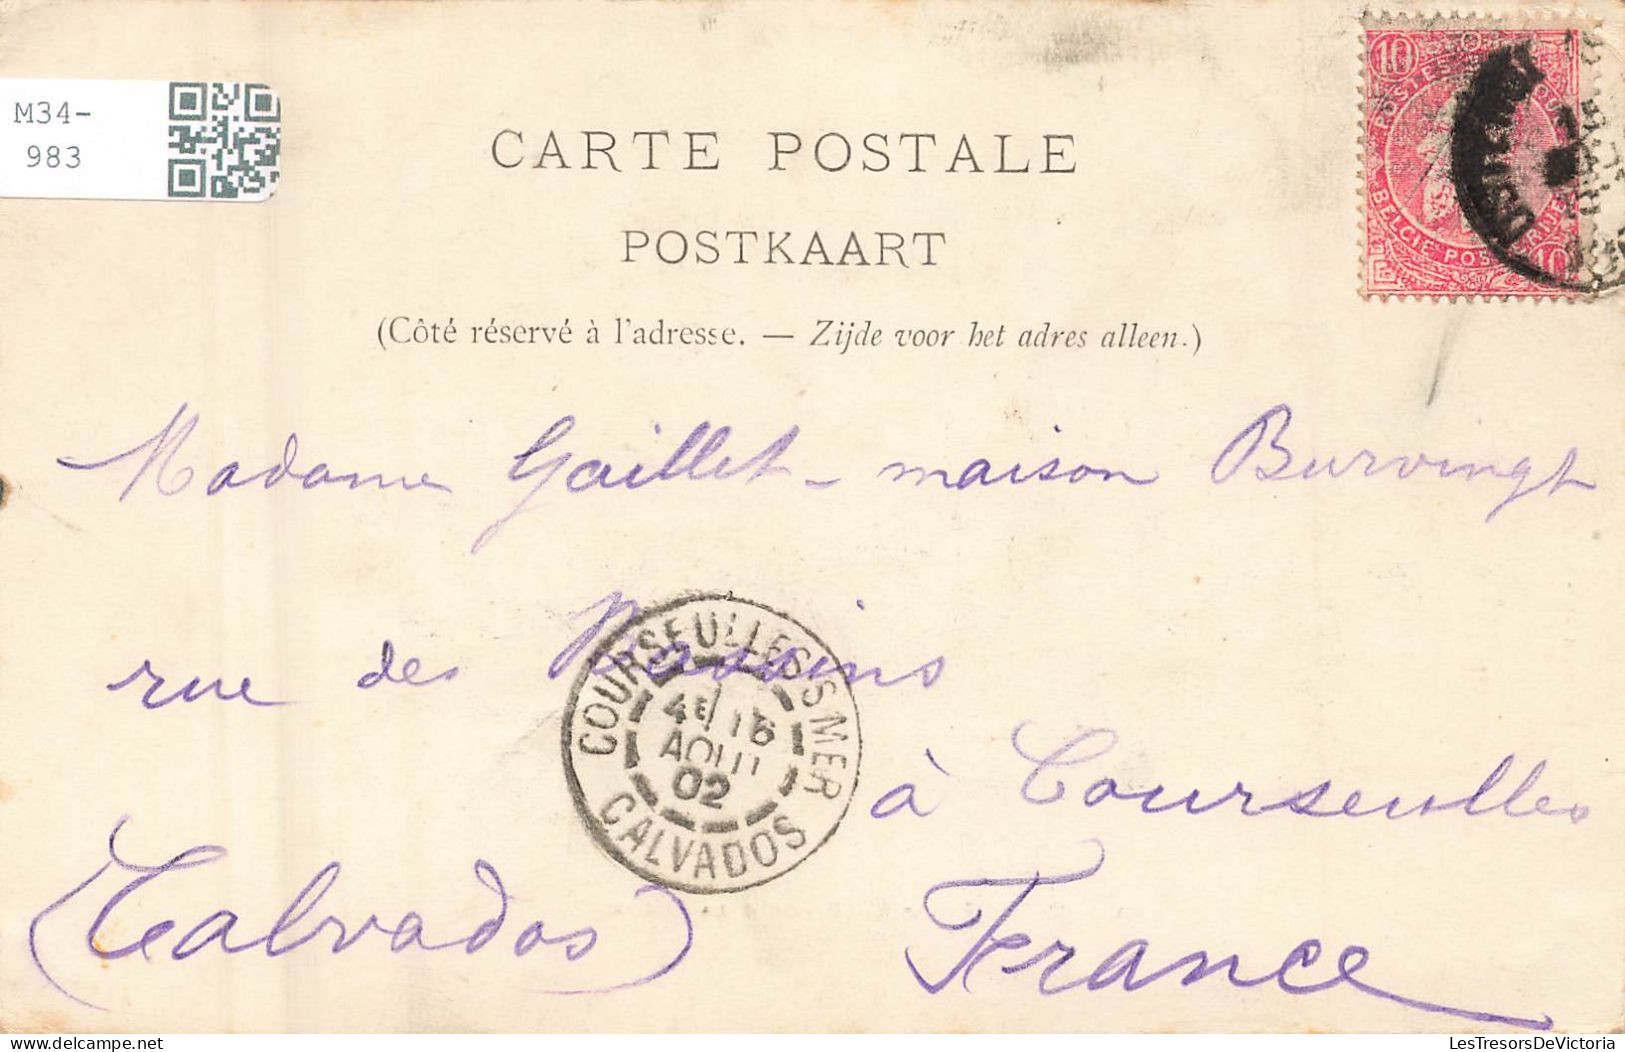 M34-
983
CARTE POSTALE
POSTKAART
(Côté réservé à l'adresse. — Zijde voor het adres alleen.)
10
BELGIE POS
10
Madame Gaillet - maison Burvingt
rue des Bassins
COURSEULLES S MER
4E 16
AOUT
02
CALVADOS
à Courseulles
(Calvados) France
LesTresorsDeVictoria